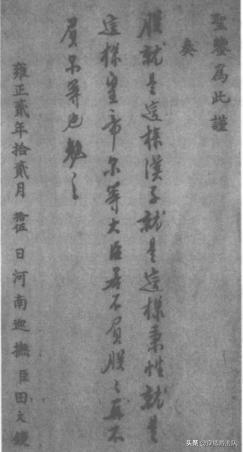 聖鑒爲此謹
奏
朕就是這樣漢子就是這樣秉性就是
這樣皇帝尔等大臣若不負朕朕再不
負尔等也勉之
雍正貳年拾貳月 拾伍 日河南巡撫臣田文鏡
头条